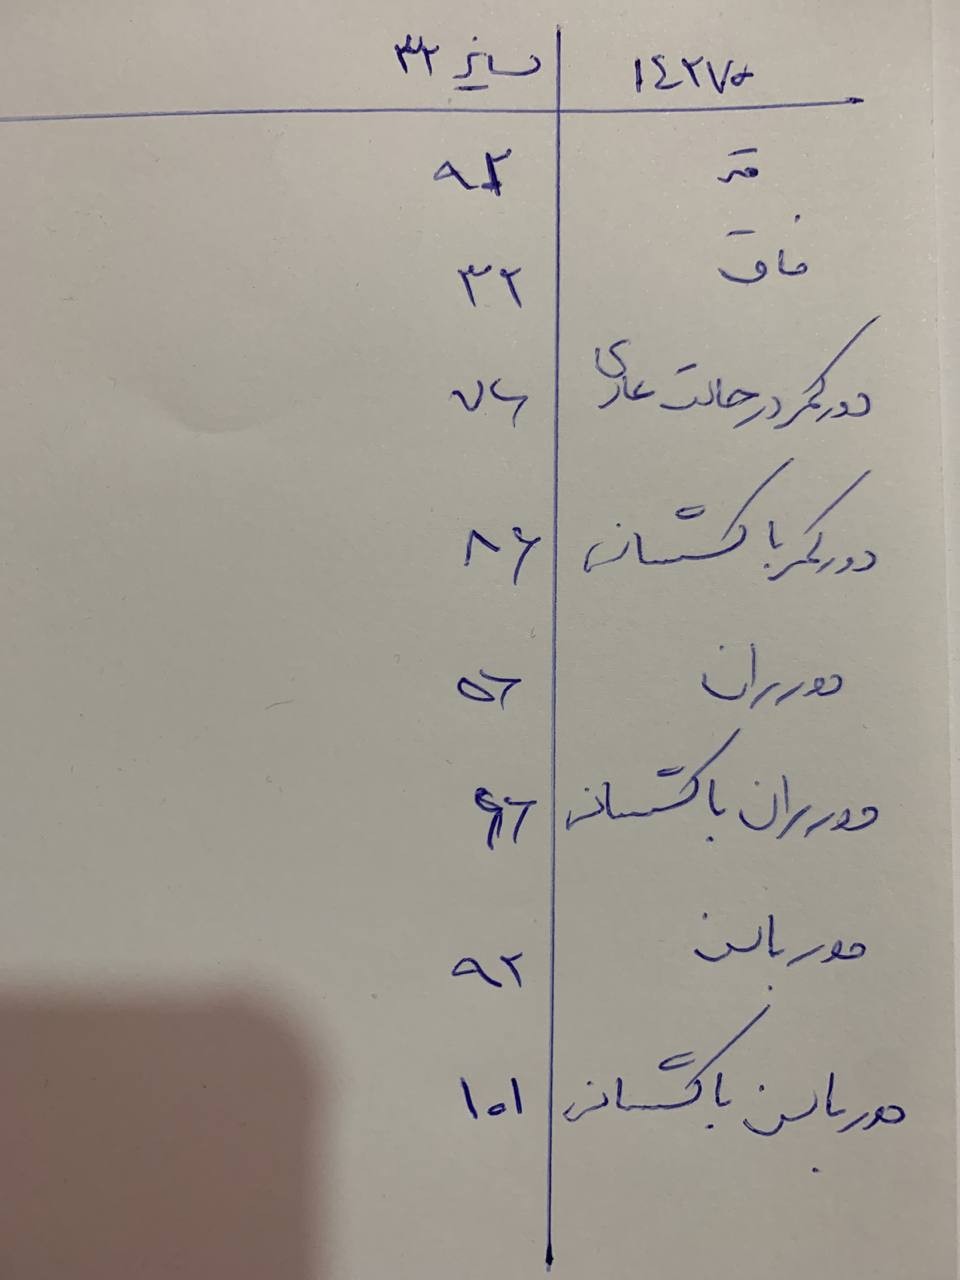 ۱۴۲۷۵ سایز ۳۲
قد ۹۲
فاق ۳۲
دورکمر در حالت عادی ۷۶
دورکمر با کشسانی ۸۶
دور ران ۵۶
دور ران با کشسانی ۶۶
دور باسن ۹۲
دور باسن با کشسانی ۱۰۱